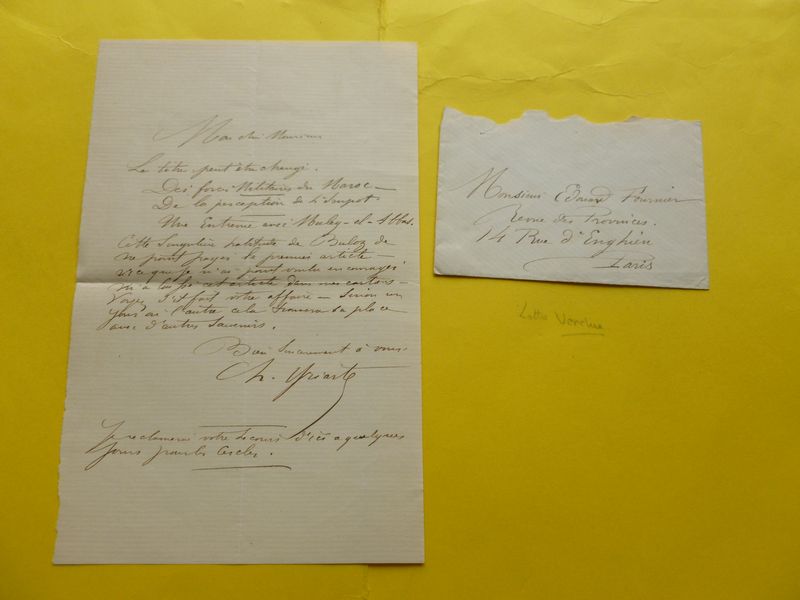 Mon cher Monsieur
Le titre peut être changé.
Des forces Militaires du Maroc —
De la perception de l'Impot
Une Entrevue avec Muley-el-Abbas.
Cette Singulière habitude de Buloz de
ne point payer le premier article —
vice que je n'ai point voulu encourager
m'a laissé cet article dans mes cartons —
Voyez S'il fait votre affaire — Sinon un
jour ou l'autre cela trouvera sa place
avec d'autres Souvenirs.
Bien Sincerement à vous.
Ch. Yriarte
Je reclamerai votre Secours d'ici a quelques
jours pour les Cercles.
Monsieur Edouard Fournier
Revue des Provinces.
14 Rue d'Enghien
Paris
Lettre